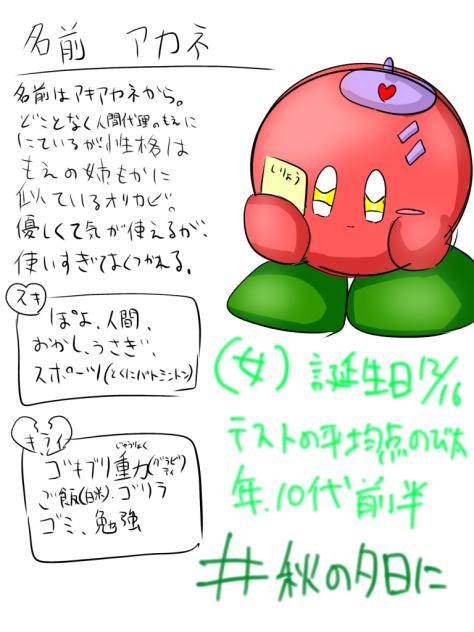 名前 アカネ
名前はアキアカネから。
どことなく人間代理のもえに
にているが性格は
もえの姉もかに
似ているオリカビ。
優しくて気が使えるが、
使いすぎてよくつかれる。
スキ
ぽよ、人間、
おかし、うさぎ、
スポーツ(とくにバトミントン)
キライ
じゅうりょく
ゴキブリ重力(グラビティ)
ご飯(白米)、ゴリラ
ゴミ、勉強
しりょう
(女)誕生日12/16
テストの平均点の
年、10代前半
#秋の夕日に